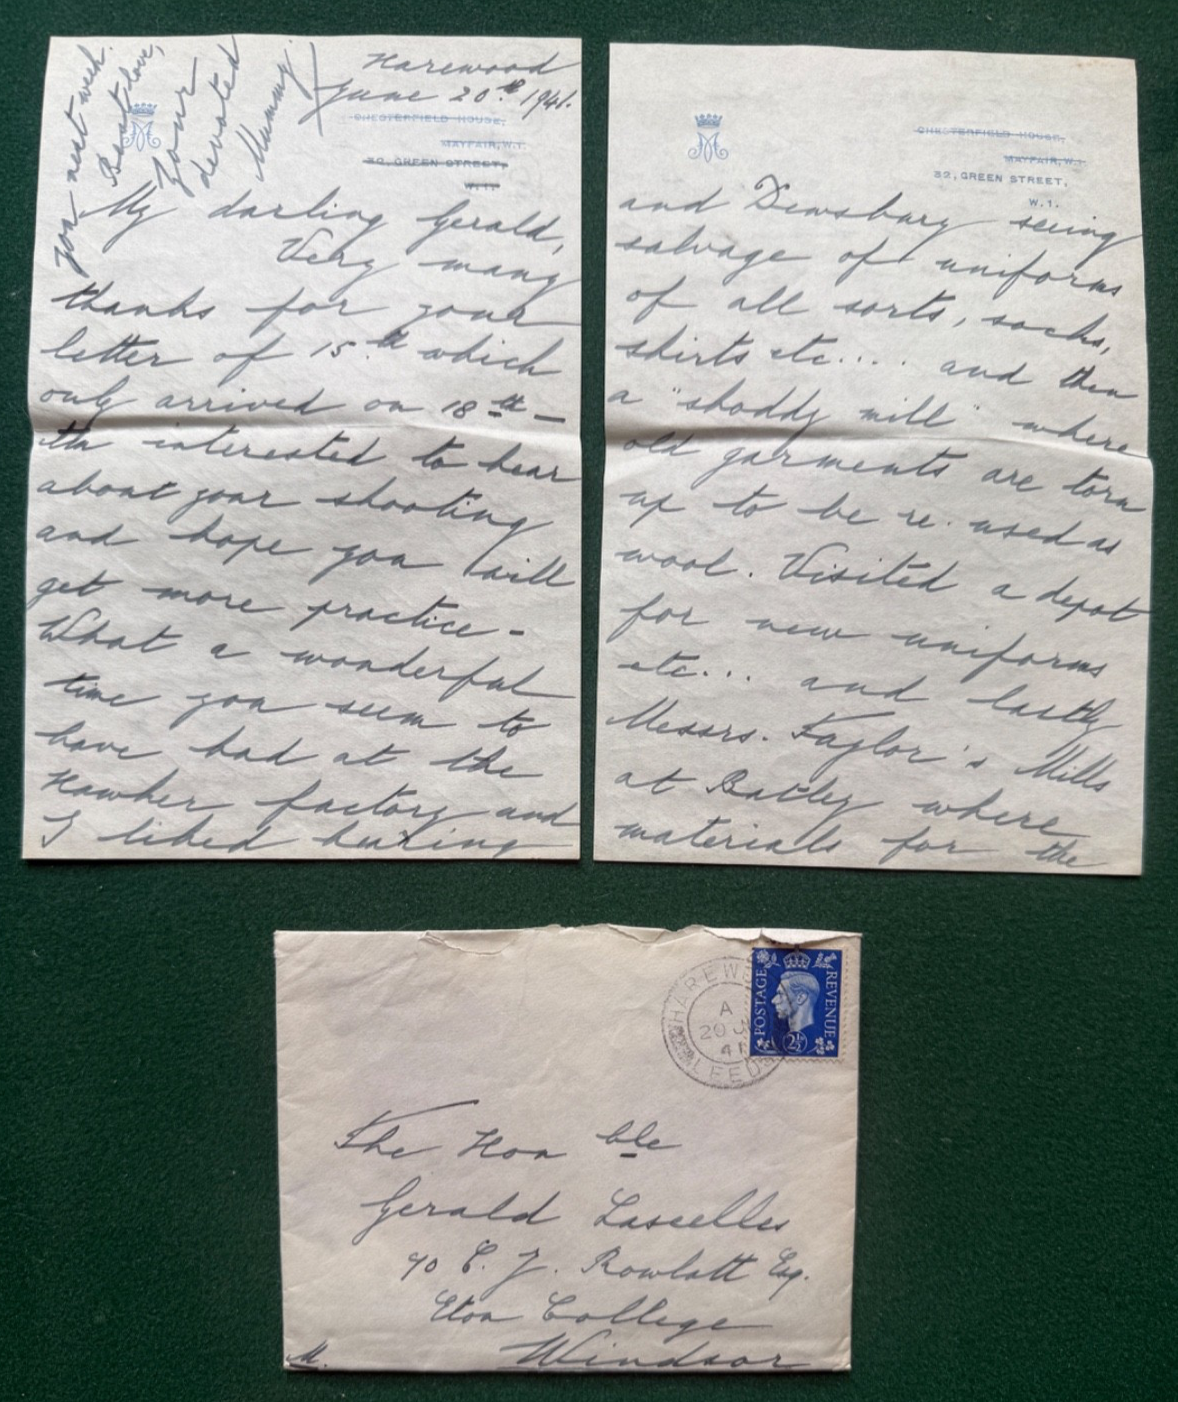 you next week.
Best love,
Your
devoted
Mummy.
Harewood
June 20th 1941.
CHESTERFIELD HOUSE,
MAYFAIR, W.1.
32, GREEN STREET,
W.1.
My darling Gerald,
Very many
thanks for your
letter of 15th which
only arrived on 18th –
I'm interested to hear
about your shooting
and hope you will
get more practice –
What a wonderful
time you seem to
have had at the
Hawker factory and
I liked hearing
CHESTERFIELD HOUSE,
MAYFAIR, W.1.
32, GREEN STREET,
W.1.
and Dewsbury seeing
salvage of uniforms
of all sorts, socks,
shirts etc.... and then
a "shoddy mill" where
old garments are torn
up to be re-used as
wool. Visited a depot
for new uniforms
etc... and lastly
Messrs. Taylor's Mills
at Batley where
materials for the
HAREW
A
20 JU
41
LEEDS
POSTAGE
REVENUE
2½
The Honble
Gerald Lascelles
c/o C. J. Rowlatt Esq.
Eton College
M. Windsor